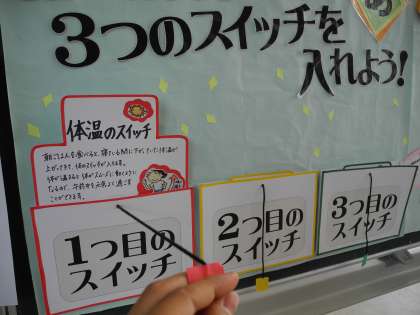 3つのスイッチを
入れよう!
体温のスイッチ
朝ごはんを食べると、寝ている間に下がっていた体温が
上がってきて、体のスイッチが入ります。
体が温まると体がスムーズに動くように
なるので、午前中を元気よく過ごす
ことができます。
1つ目の
スイッチ
2つ目の
スイッチ
3つ目の
スイッチ